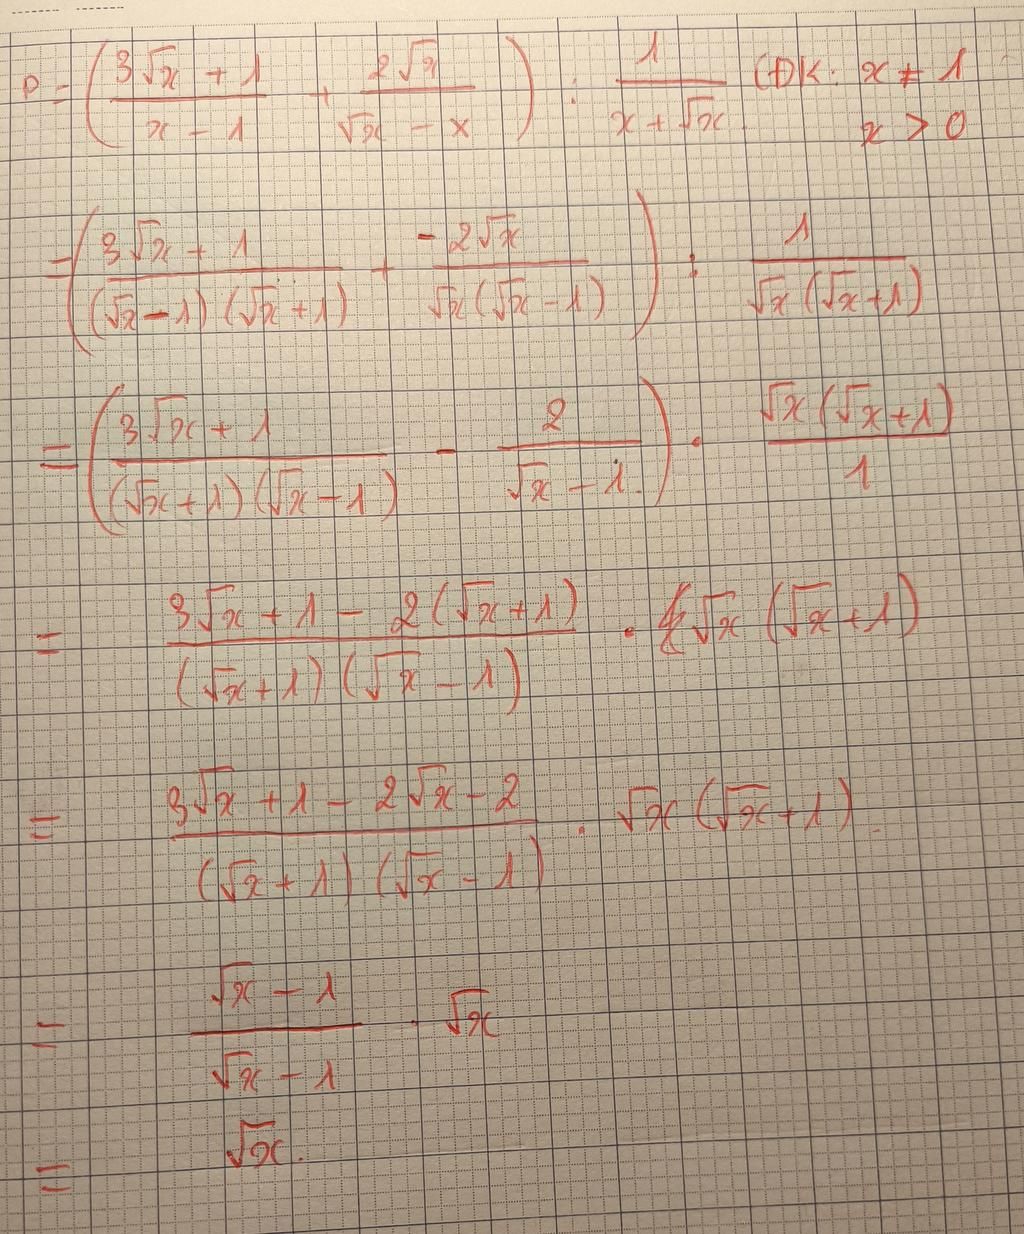 P = ( (3√x + 1)/(x - 1) + (2√x)/(√x - x) ) : 1/(x + √x) (ĐK: x ≠ 1
x > 0
= ( (3√x + 1)/((√x - 1)(√x + 1)) + (-2√x)/(√x(√x - 1)) ) : 1/(√x(√x + 1))
= ( (3√x + 1)/((√x + 1)(√x - 1)) - 2/(√x - 1) ) . (√x(√x + 1))/1
= (3√x + 1 - 2(√x + 1))/((√x + 1)(√x - 1)) . √x(√x + 1)
= (3√x + 1 - 2√x - 2)/((√x + 1)(√x - 1)) . √x(√x + 1).
= (√x - 1)/(√x - 1) . √x
= √x.